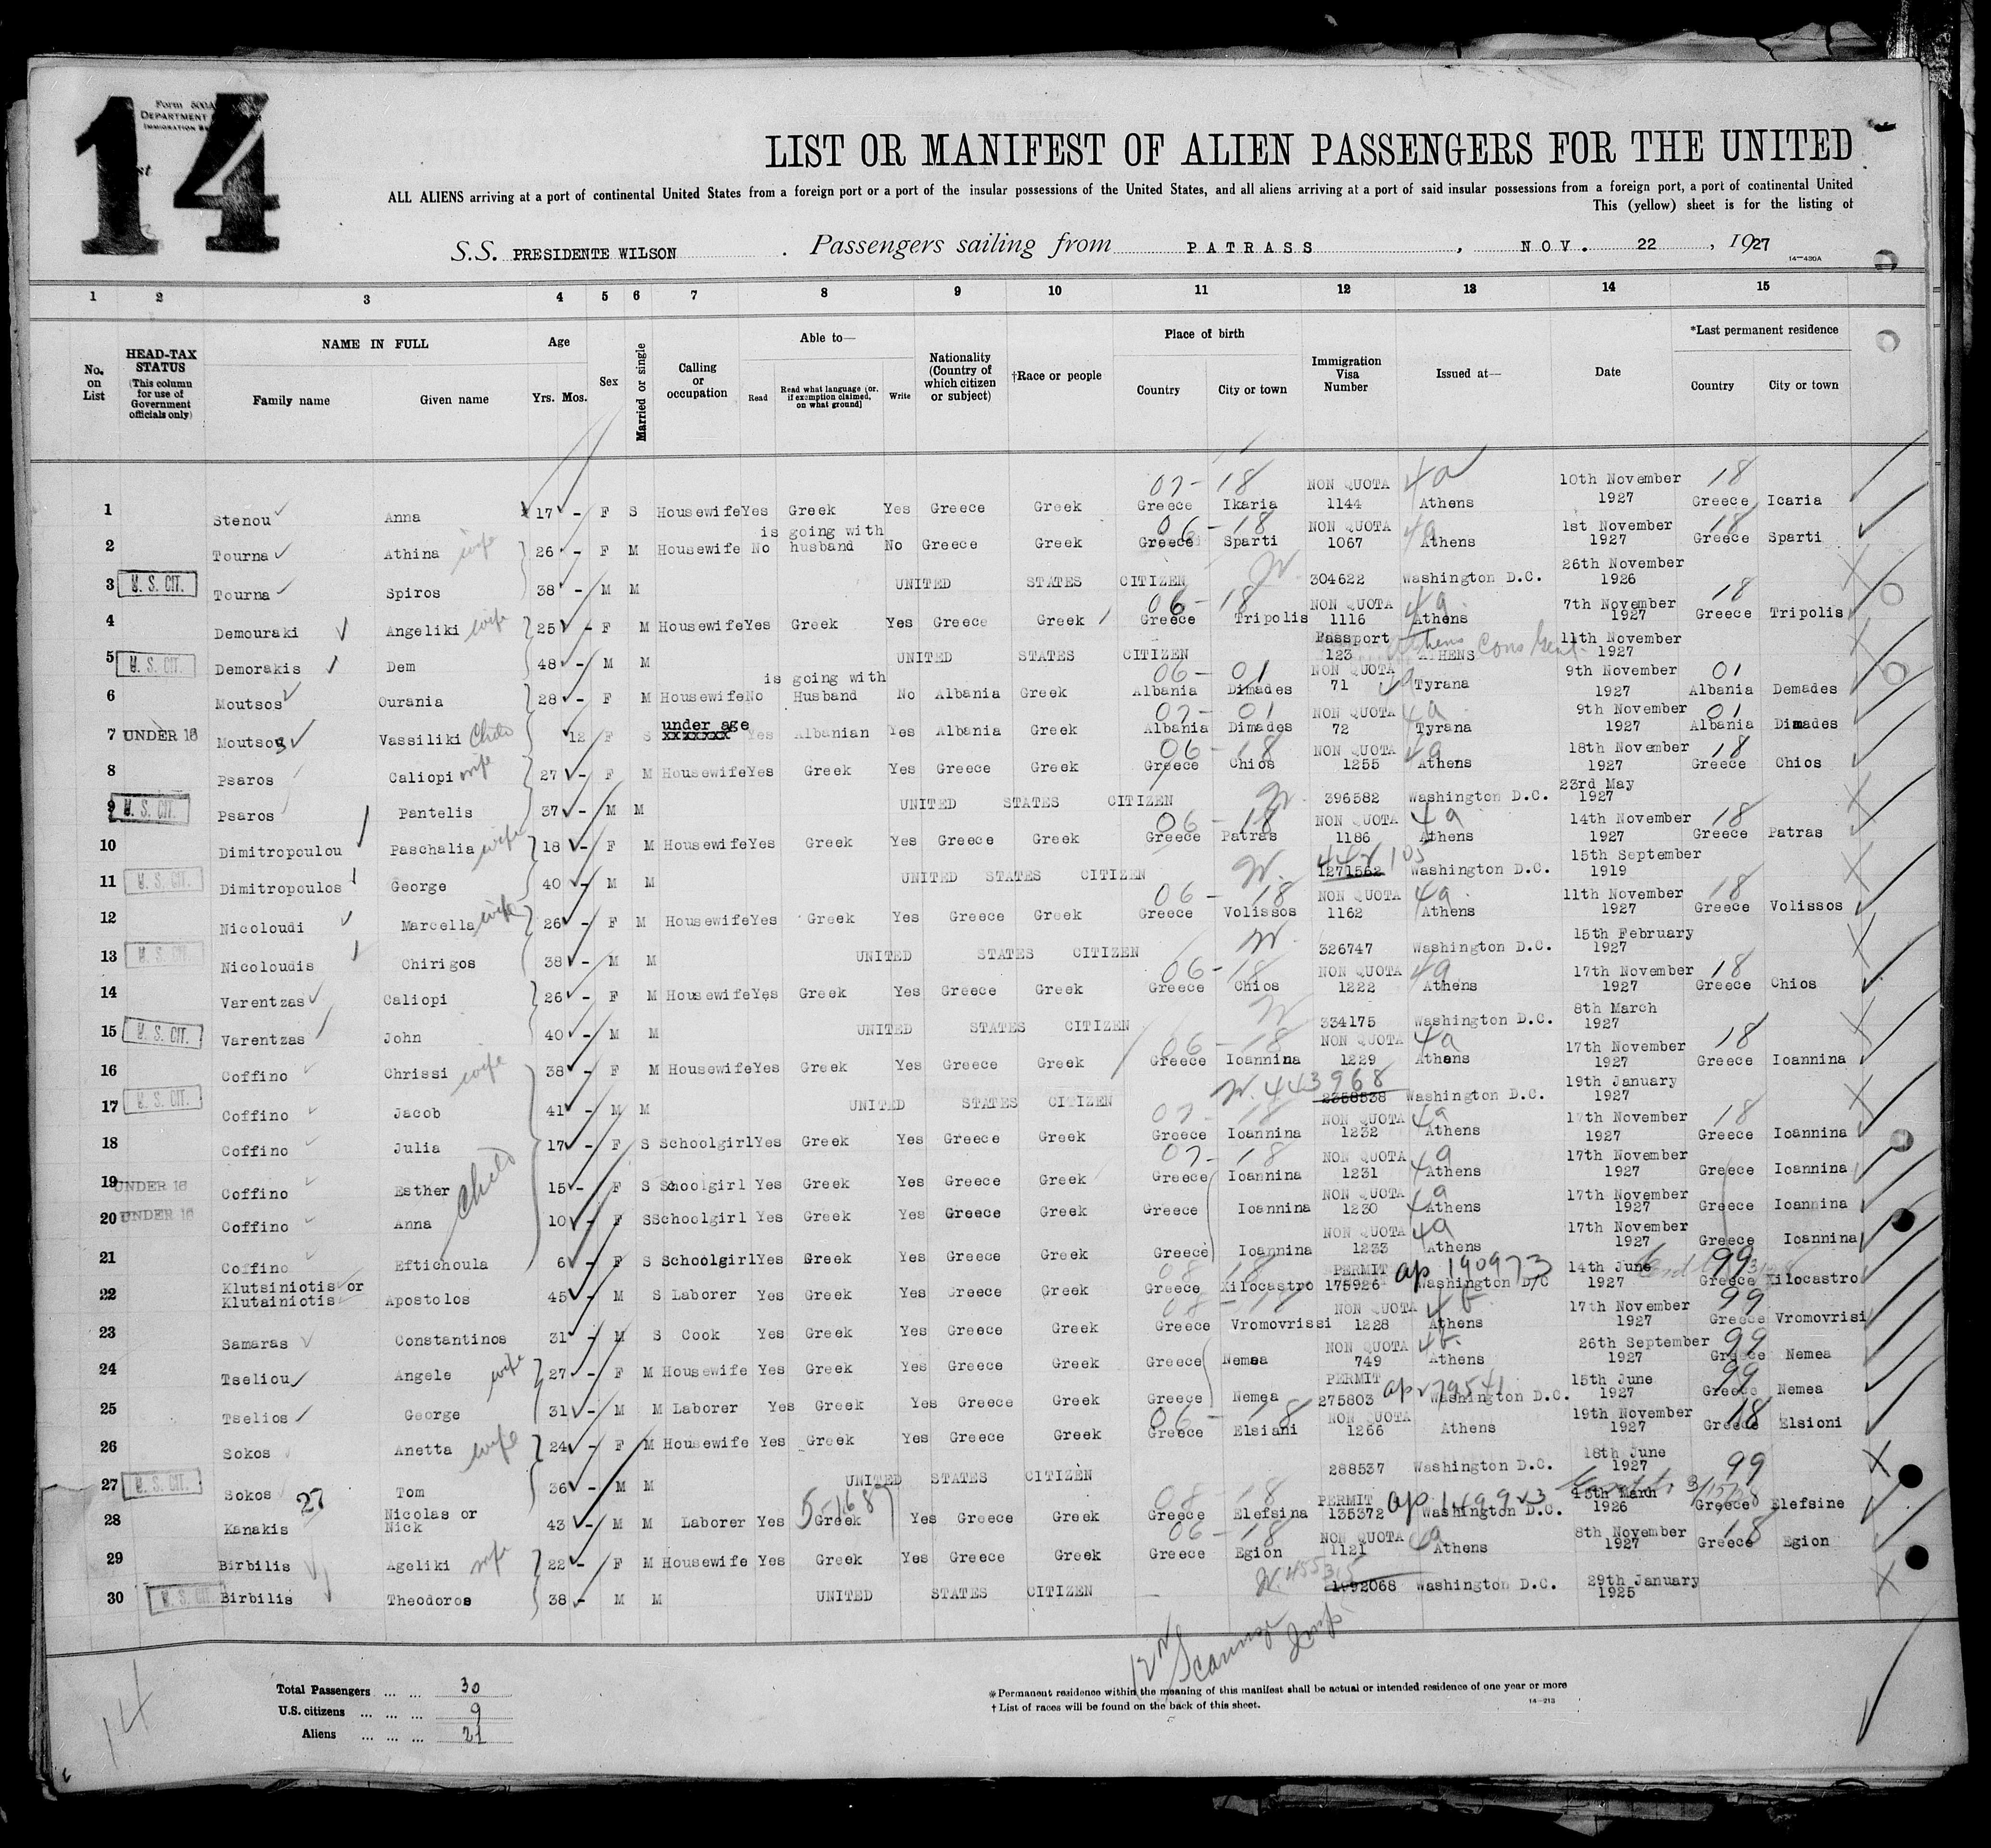 14
Form 500A
DEPARTMENT
LIST OR MANIFEST OF ALIEN PASSENGERS FOR THE UNITED
ALL ALIENS arriving at a port of continental United States from a foreign port or a port of the insular possessions of the United States, and all aliens arriving at a port of said insular possessions from a foreign port, a port of continental United
This (yellow) sheet is for the listing of
S.S. PRESIDENTE WILSON . Passengers sailing from PATRASS , NOV. 22 , 1927
14—430A
1 2 3 4 5 6 7 8 9 10 11 12 13 14 15
No. on List
HEAD-TAX STATUS (This column for use of Government officials only)
NAME IN FULL Family name Given name
Age Yrs. Mos.
Sex
Married or single
Calling or occupation
Able to— Read Read what language (or, if exemption claimed, on what ground) Write
Nationality (Country of which citizen or subject)
†Race or people
Place of birth Country City or town
Immigration Visa Number
Issued at—
Date
*Last permanent residence Country City or town
1 Stenou Anna 17 - F S Housewife Yes Greek Yes Greece Greek 07- 18 Greece Ikaria NON QUOTA 1144 4a Athens 10th November 1927 18 Greece Icaria
2 Tourna Athina wife 26 - F M Housewife No is going with husband No Greece Greek 06- 18 Greece Sparti NON QUOTA 1067 4a Athens 1st November 1927 18 Greece Sparti
3 U. S. CIT. Tourna Spiros 38 - M M UNITED STATES CITIZEN 304622 Washington D.C. 26th November 1926
4 Demouraki Angeliki wife 25 - F M Housewife Yes Greek Yes Greece Greek 06- 18 Greece Tripolis NON QUOTA 1116 4a Athens 7th November 1927 18 Greece Tripolis
5 U. S. CIT. Demorakis Dem 48 - M M UNITED STATES CITIZEN Passport 123 ATHENS Athens Cons Genl. 11th November 1927
6 Moutsos Ourania 28 - F M Housewife No is going with Husband No Albania Greek 06- 01 Albania Dimades NON QUOTA 71 4a Tyrana 9th November 1927 01 Albania Demades
7 UNDER 16 Moutsos Vassiliki Child 12 F S under age xxxxxxxx Yes Albanian Yes Albania Greek 07- 01 Albania Dimades NON QUOTA 72 4a Tyrana 9th November 1927 01 Albania Dimades
8 Psaros Caliopi wife 27 - F M Housewife Yes Greek Yes Greece Greek 06- 18 Greece Chios NON QUOTA 1255 4a Athens 18th November 1927 18 Greece Chios
9 U. S. CIT. Psaros Pantelis 37 - M M UNITED STATES CITIZEN 396582 Washington D.C. 23rd May 1927
10 Dimitropoulou Paschalia wife 18 - F M Housewife Yes Greek Yes Greece Greek 06- 18 Greece Patras NON QUOTA 1186 4a Athens 14th November 1927 18 Greece Patras
11 U. S. CIT. Dimitropoulos George 40 - M M UNITED STATES CITIZEN 1271562 Washington D.C. 15th September 1919
12 Nicoloudi Marcella wife 26 - F M Housewife Yes Greek Yes Greece Greek 06- 18 Greece Volissos NON QUOTA 1162 4a Athens 11th November 1927 18 Greece Volissos
13 U. S. CIT. Nicoloudis Chirigos 38 - M M UNITED STATES CITIZEN 326747 Washington D.C. 15th February 1927
14 Varentzas Caliopi 26 - F M Housewife Yes Greek Yes Greece Greek 06- 18 Greece Chios NON QUOTA 1222 4a Athens 17th November 1927 18 Greece Chios
15 U. S. CIT. Varentzas John 40 - M M UNITED STATES CITIZEN 334175 Washington D.C. 8th March 1927
16 Coffino Chrissi wife 38 - F M Housewife Yes Greek Yes Greece Greek 06- 18 Greece Ioannina NON QUOTA 1229 4a Athens 17th November 1927 18 Greece Ioannina
17 U. S. CIT. Coffino Jacob 41 - M M UNITED STATES CITIZEN 443968 2358538 Washington D.C. 19th January 1927
18 Coffino Julia 17 - F S Schoolgirl Yes Greek Yes Greece Greek 07- 18 Greece Ioannina NON QUOTA 1232 4a Athens 17th November 1927 18 Greece Ioannina
19 UNDER 16 Coffino Esther Child 15 - F S Schoolgirl Yes Greek Yes Greece Greek 07- 18 Greece Ioannina NON QUOTA 1231 4a Athens 17th November 1927 Greece Ioannina
20 UNDER 16 Coffino Anna 10 - F S Schoolgirl Yes Greek Yes Greece Greek Greece Ioannina NON QUOTA 1230 4a Athens 17th November 1927 Greece Ioannina
21 Coffino Eftichoula 6 - F S Schoolgirl Yes Greek Yes Greece Greek Greece Ioannina NON QUOTA 1233 4a Athens 17th November 1927 Greece Ioannina
22 Klutsiniotis or Klutainiotis Apostolos 45 - M S Laborer Yes Greek Yes Greece Greek 08- 18 Greece Xilocastro PERMIT 175926 ap 190973 Washington D/C 14th June 1927 99 Greece Xilocastro
23 Samaras Constantinos 31 - M S Cook Yes Greek Yes Greece Greek 08- 18 Greece Vromovrissi NON QUOTA 1228 4b Athens 17th November 1927 99 Greece Vromovrisi
24 Tseliou Angele wife 27 - F M Housewife Yes Greek Yes Greece Greek Greece Nemea NON QUOTA 749 4b. Athens 26th September 1927 99 Greece Nemea
25 Tselios George 31 - M M Laborer Yes Greek Yes Greece Greek Greece Nemea PERMIT 275803 Washington D.C. 15th June 1927 99 Greece Nemea
26 Sokos Anetta wife 24 - F M Housewife Yes Greek Yes Greece Greek 06- 18 Greece Elsiani NON QUOTA 1266 Athens 19th November 1927 18 Greece Elsioni
27 U. S. CIT. Sokos Tom 36 - M M UNITED STATES CITIZEN 288537 Washington D.C. 18th June 1927
28 27 Kanakis Nicolas or Nick 43 - M M Laborer Yes Greek Yes Greece Greek 08- 18 Greece Elefsina PERMIT 135372 Washington D.C. 15th March 1926 99 Greece Elefsine
29 Birbilis Ageliki wife 22 - F M Housewife Yes Greek Yes Greece Greek 06- 18 Greece Egion NON QUOTA 1121 4a Athens 8th November 1927 18 Greece Egion
30 U. S. CIT. Birbilis Theodoros 38 - M M UNITED STATES CITIZEN 1092068 Washington D.C. 29th January 1925
14
Total Passengers ... ... 30
U.S. citizens ... ... ... 9
Aliens ... ... ... 21
*Permanent residence within the meaning of this manifest shall be actual or intended residence of one year or more
† List of races will be found on the back of this sheet.
14—213